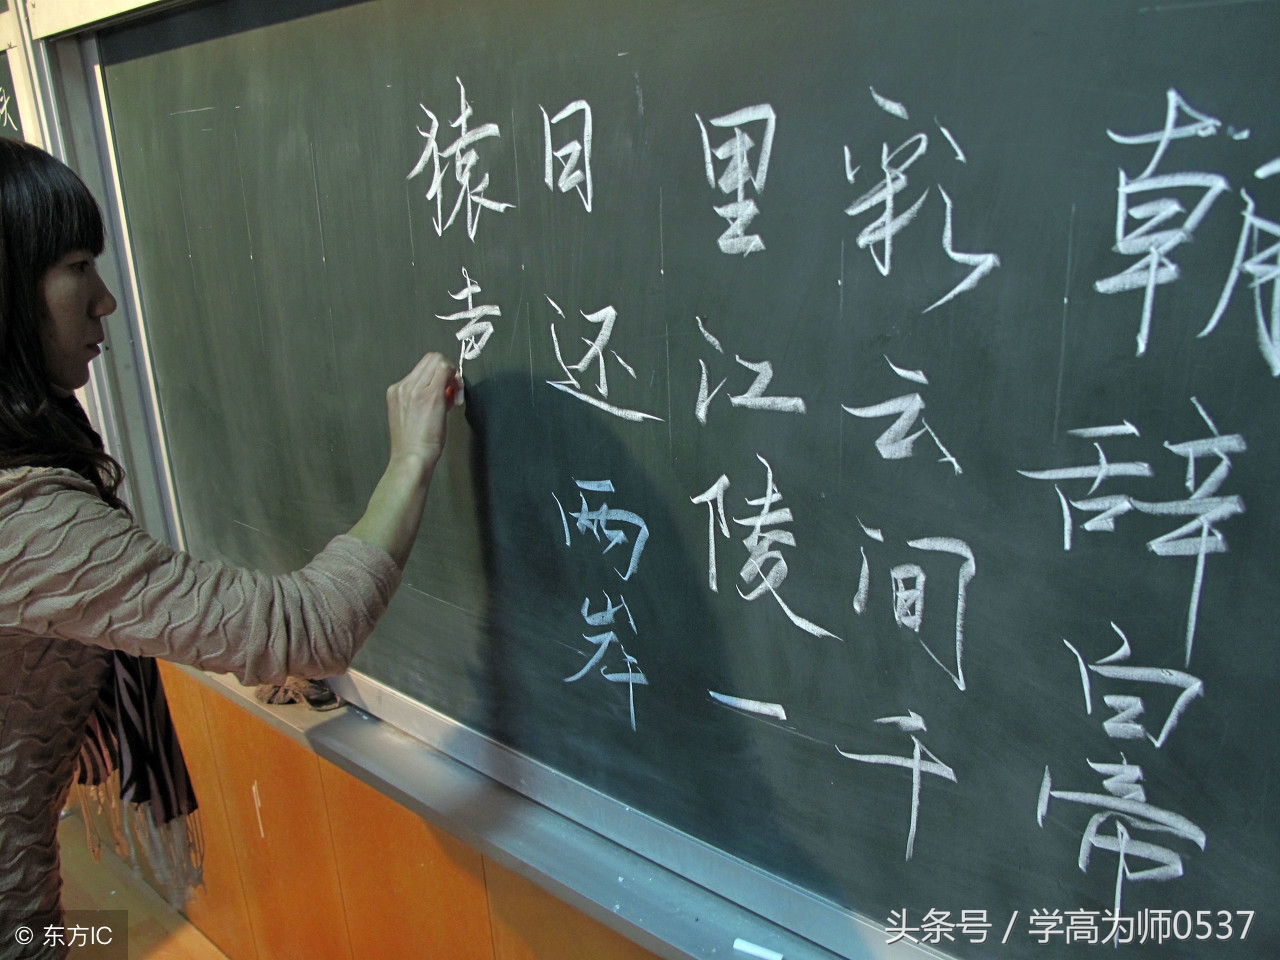 朝辞白帝
彩云间千
里江陵一
日还两岸
猿声
© 东方IC
头条号 / 学高为师0537